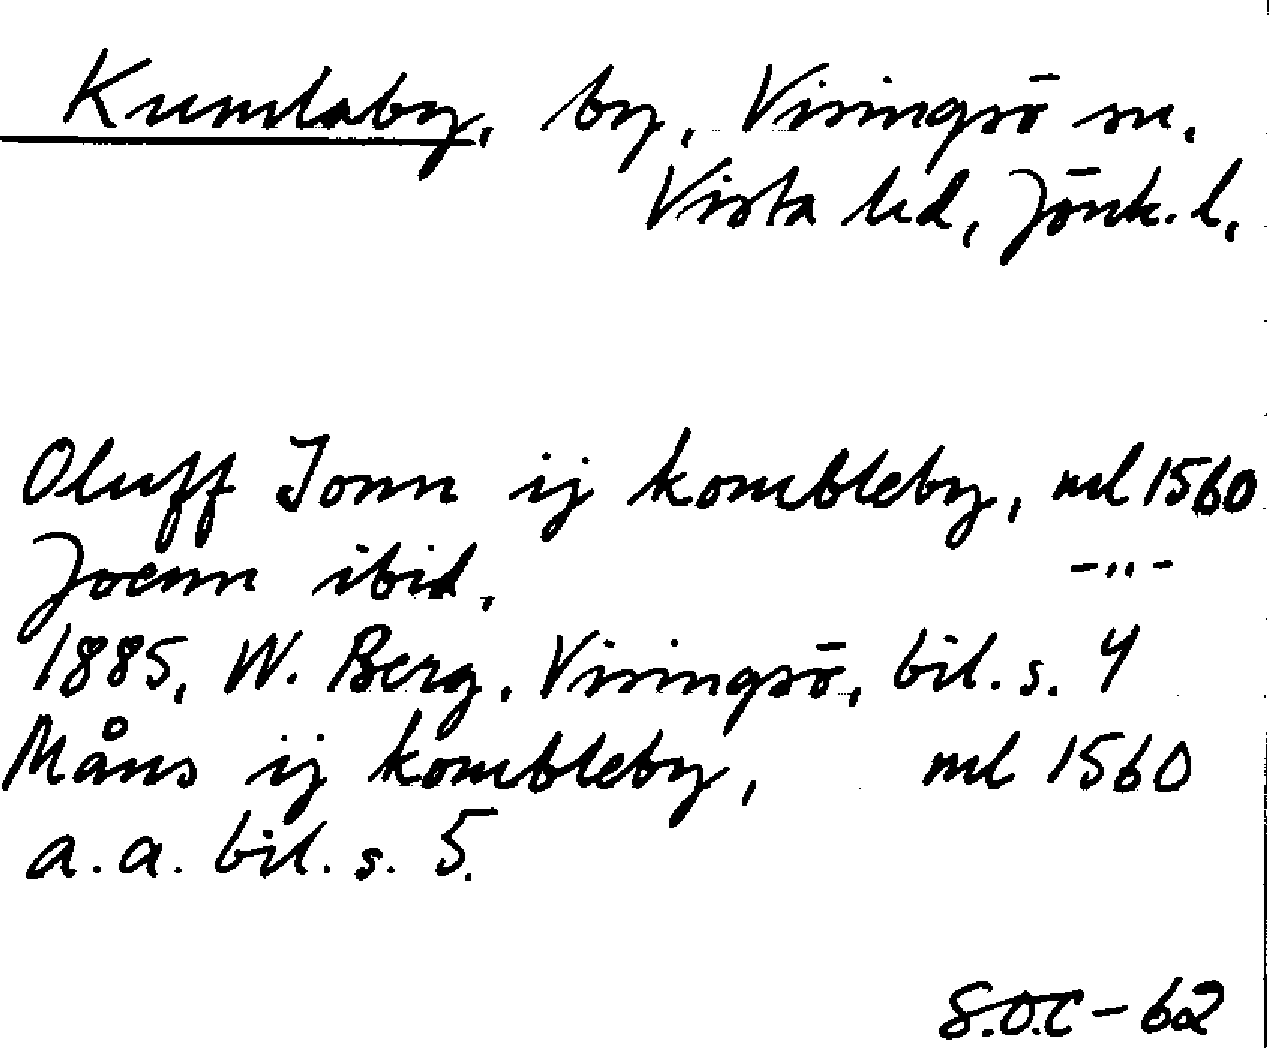 Kumlaby, by, Visingsö sn.
Vista hd, Jönk. l.
Oluff Jonn ij kombleby, ml 1560
Joenn ibid. -"-
1885, W. Berg, Visingsö, bil. s. 4
Måns ij kombleby, ml 1560
a.a. bil. s. 5.
S.O.C-62